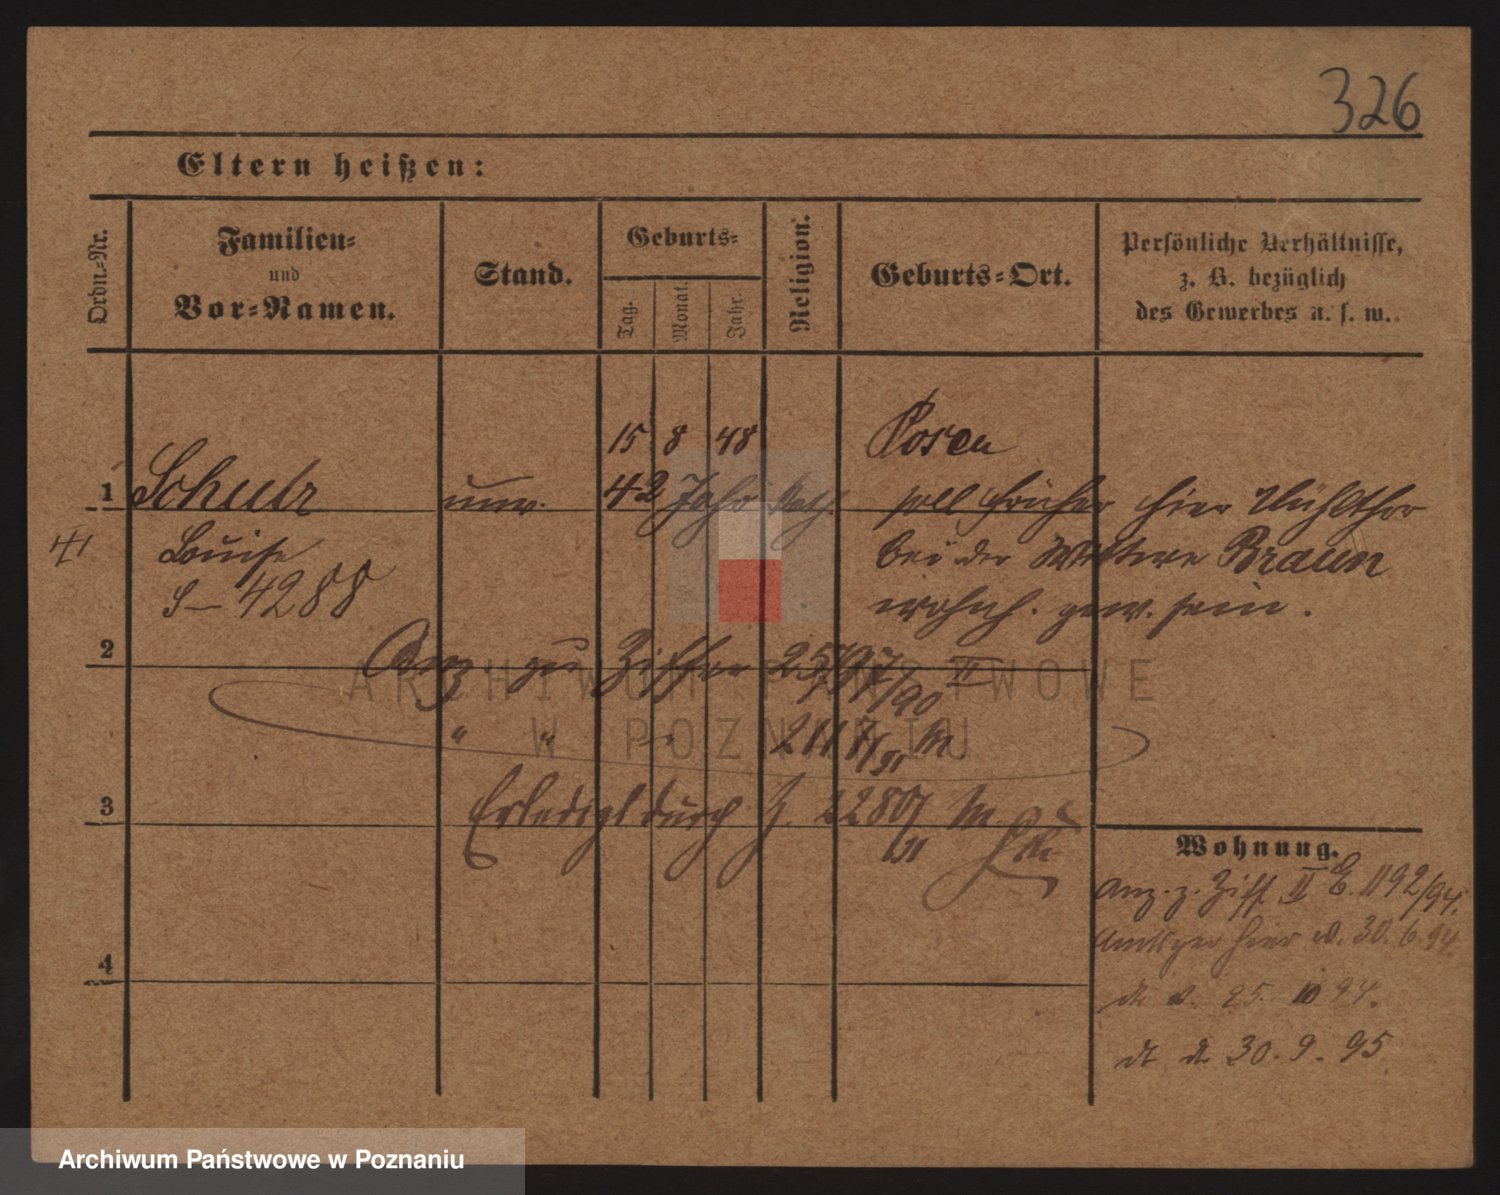 326
Eltern heißen:
Ordn.-Nr.
Familien-
und
Vor-Namen.
Stand.
Geburts-
Tag.
Monat.
Jahr.
Religion.
Geburts-Ort.
Persönliche Verhältnisse,
z. B. bezüglich
des Gewerbes u. s. w.
15 8 48 Posen
1 Schulz unv. 42 Jahr kath. soll früher hier Mühlthor
Louise bei der Wittwe Braun
S-4288 wohnh. gew. sein.
2 Anz. zu Ziffer /90 II
" " /91 M
3 Erledigt durch Z. 2280/91 M.
Wohnung.
Anz. z. Ziff. II E. 1192/94.
Amtsger hier v. 30. 6. 94.
4
dto v. 25. 10 94.
dt dt 30. 9. 95
ARCHIWUM PAŃSTWOWE
W POZNANIU
Archiwum Państwowe w Poznaniu